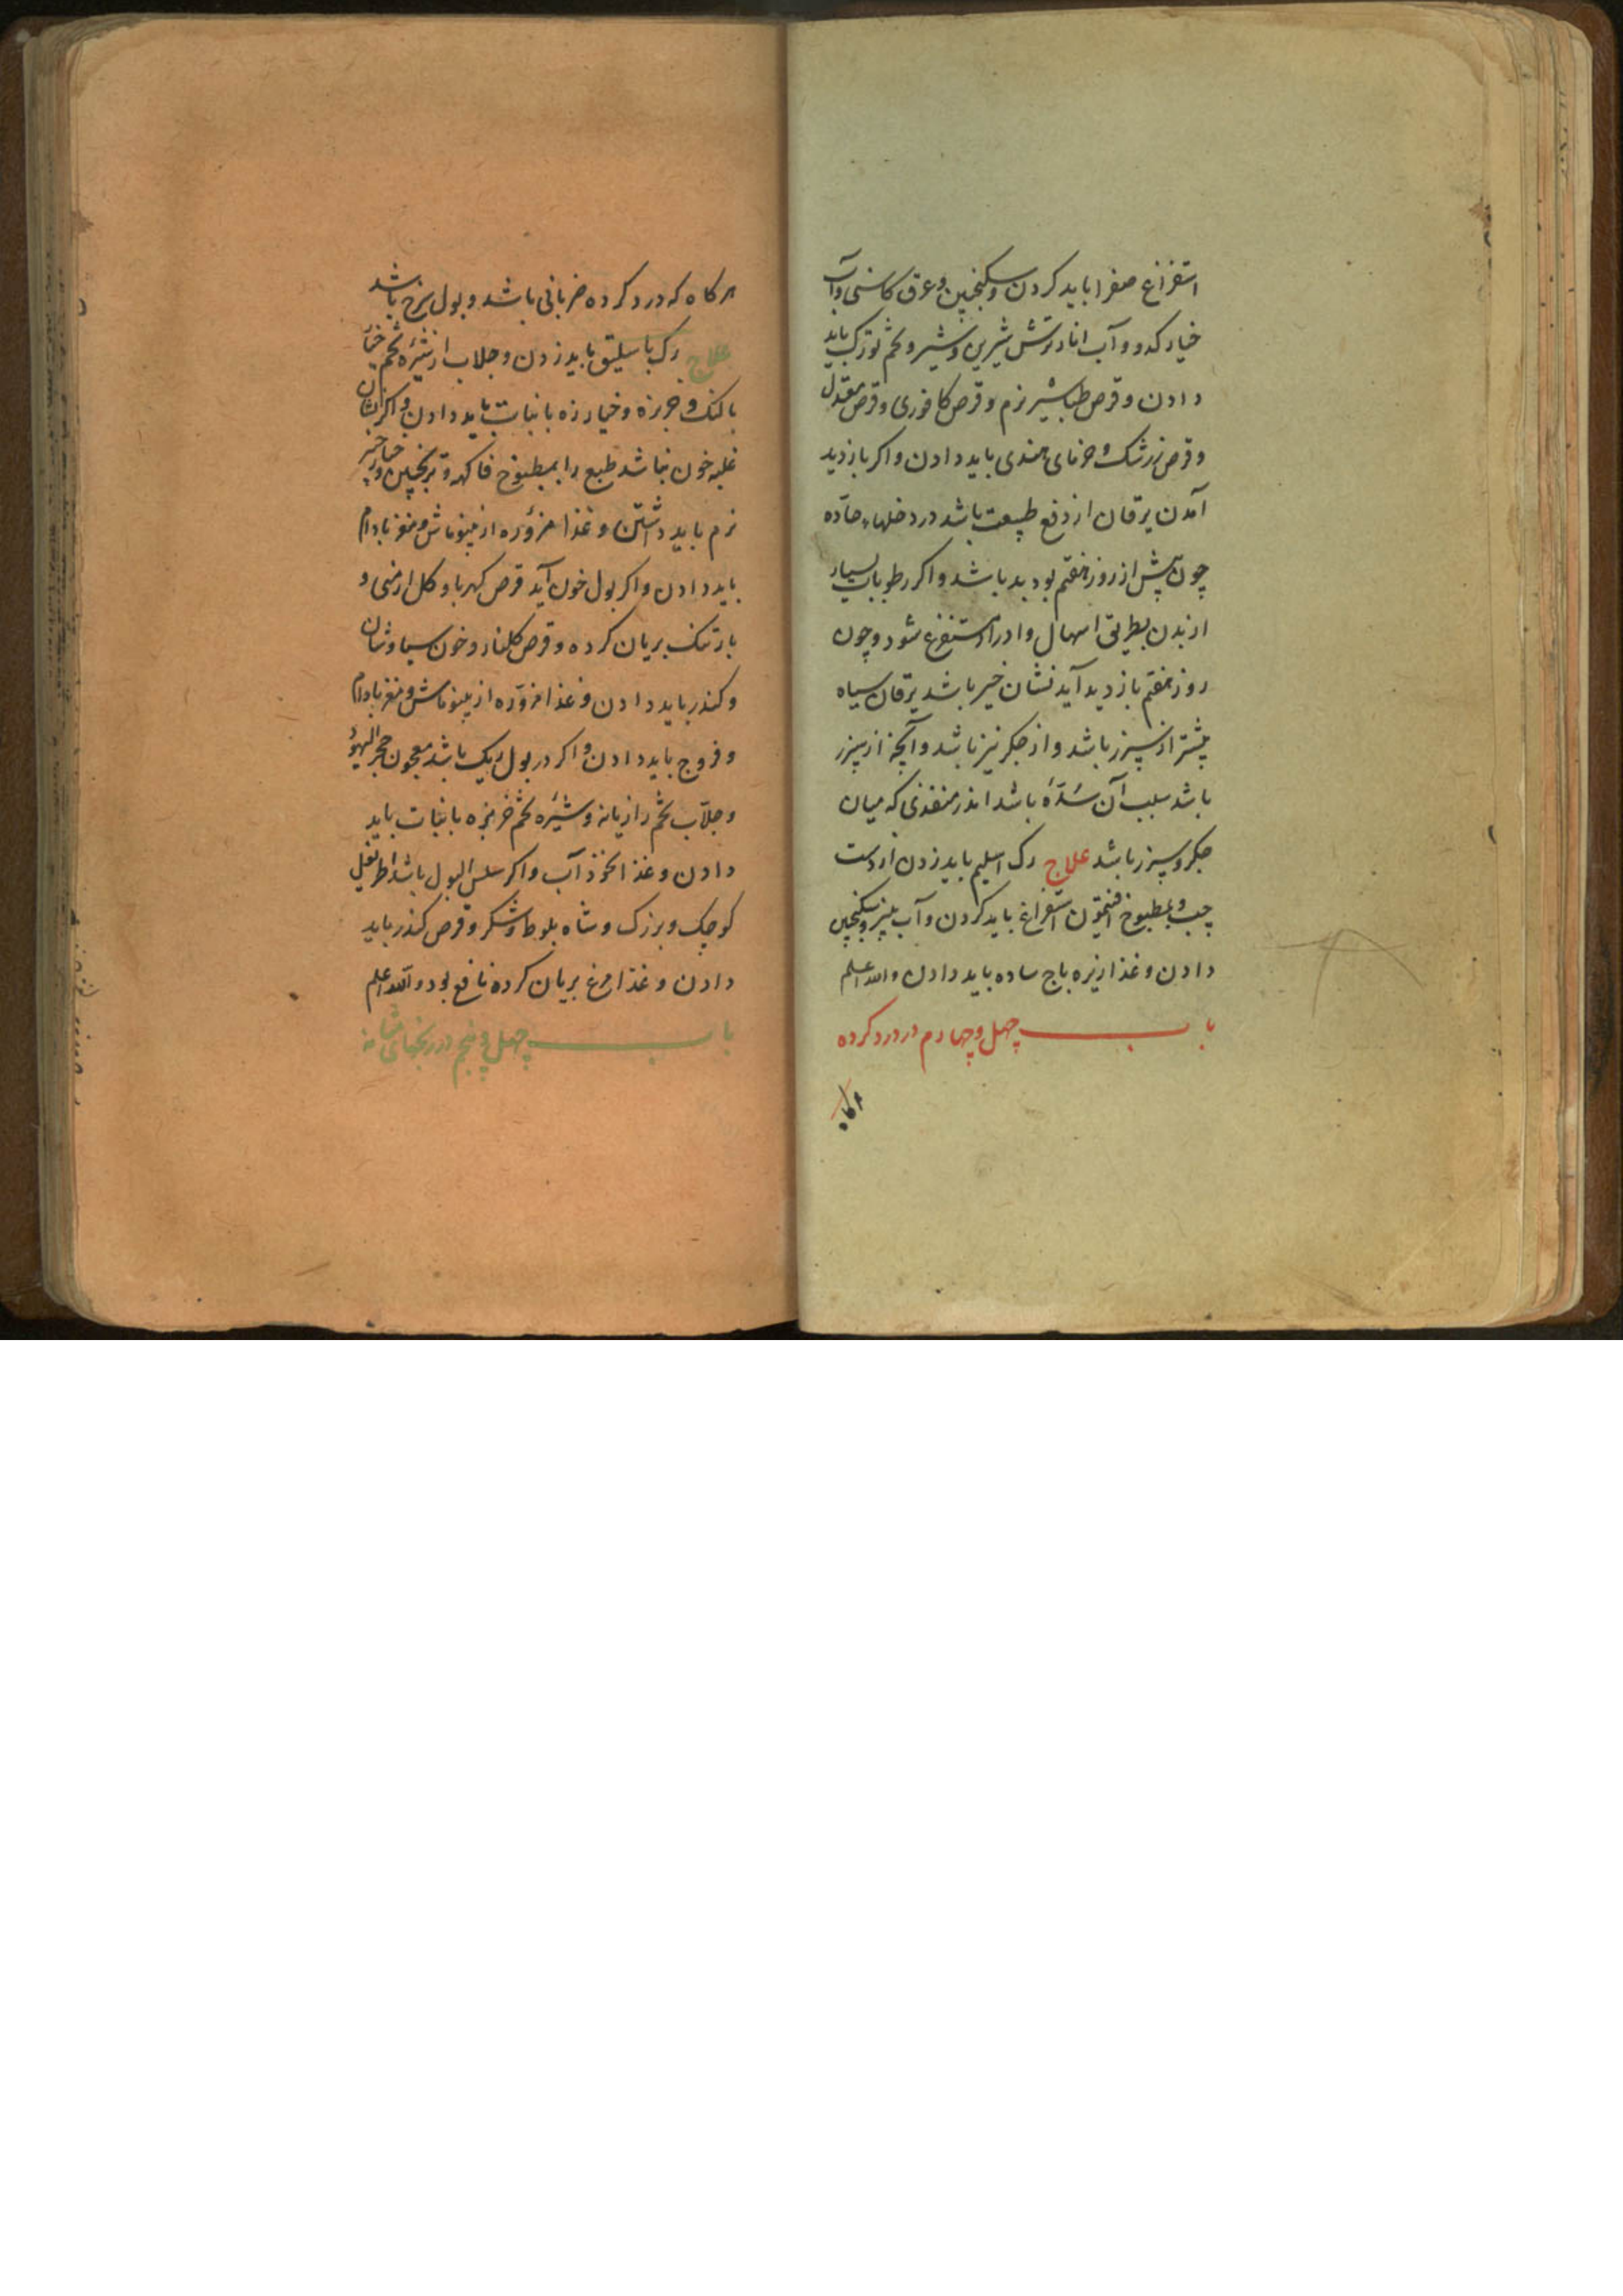 استفراغ صفرا باید کردن و سکنجبین و عرق کاسنی و آب
خیار کدو و آب انار ترش شیرین و شیر و تخم تورک باید
دادن و قرص طباشیر نرم و قرص کافوری و قرص
و قرص زرشک و خرمای هندی باید دادن و اکر بازدید
آمدن یرقان از دفع طبیعت باشد در دخلهاء حاده
چون پیش از روز هفتم بود بد باشد و اکر رطوبات بسیار
از بدن بطریق اسهال و ادرار مستفرغ شود و چون
روز هفتم بازدید آید نشان خیر باشد یرقان سیاه
بیشتر از سپرز باشد و از جکر نیز باشد و آنچه از سپرز
باشد سبب آن سدّهٔ باشد اندر منفذی که میان
جکر و سپرز باشد علاج رک اسلیم باید زدن از دست
چپ و بمطبوخ افتیمون استفراغ باید کردن و آب پنیر و سکنجبین
دادن و غذا زیره باج ساده باید دادن والله اعلم
باب چهل و چهارم در درد کرده
هرکاه
هرکاه که درد کرده ضربانی باشد و بول سرخ باشد
علاج رک باسلیق باید زدن و جلاب از شیره تخم خیار
بالنک و خربزه و خیارزه با نبات باید دادن و اکر نشان
غلبه خون نباشد طبع را بمطبوخ فاکهه و ترنجبین و خیارچنبر
نرم باید داشتن و غذا مزوره از بنو ماش و مغز بادام
باید دادن و اکر بول خون آید قرص کهربا و کل ارمنی و
بارتنک بریان کرده و قرص کلنار و خون سیاوشان
و کندر باید دادن و غذا مزوره از بنو ماش و مغز بادام
و فروج باید دادن و اکر در بول ریک باشد معجون حجر الیهود
و جلاب تخم رازیانه و شیره تخم خربزه با نبات باید
دادن و غذا نخود آب و اکر سلس البول باشد اطریفل
کوچک و بزرک و شاه بلوط و شکر و قرص کندر باید
دادن و غذا مرغ بریان کرده نافع بود والله اعلم
باب چهل و پنجم در رنجهای مثانه